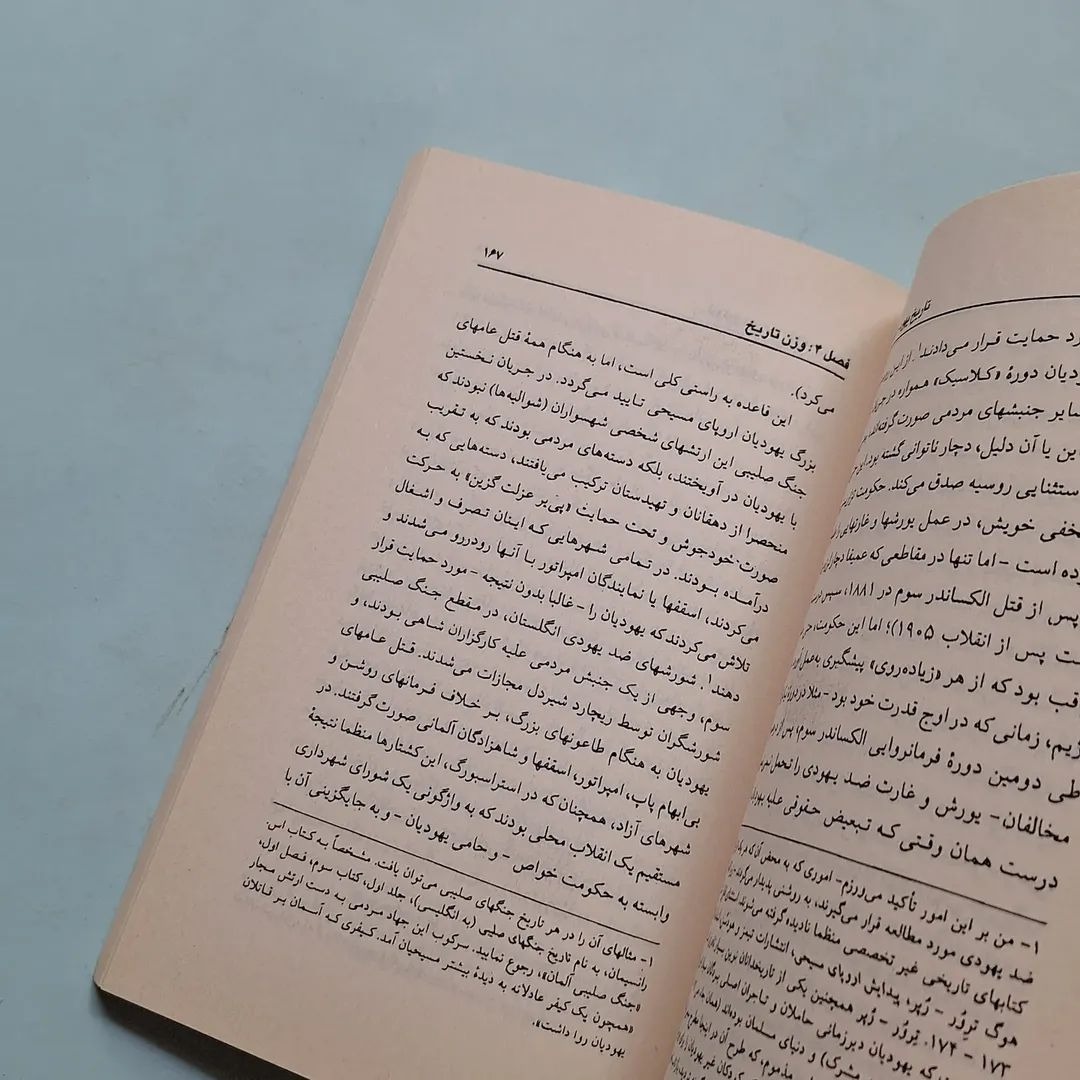 تاریخ یهود
رد حمایت قرار می‌دادند۱. از این
ودیان دورهٔ «کلاسیک» همواره در
سایر جنبشهای مردمی صورت گرفته‌اند،
این یا آن دلیل، دچار ناتوانی گشته بود.
ستثنایی روسیه صدق می‌کند. حکومت
خفی خویش، در عمل یورشها و غارتهایی را
ده است - اما تنها در مقاطعی که عمیقا دچار
پس از قتل الکساندر سوم در ۱۸۸۱، سپس
ست پس از انقلاب ۱۹۰۵)؛ اما این حکومت،
قب بود که از هر «زیاده‌روی» پیشگیری به‌عمل
ژیم، زمانی که در اوج قدرت خود بود - مثلا در دوره
طی دومین دورهٔ فرمانروایی الکساندر سوم، پس از
مخالفان - یورش و غارت ضد یهودی را تحمل
درست همان وقتی که تبعیض حقوقی علیه یهود
۱- من بر این امور تأکید می‌ورزم - اموری که به محض آن که
ضد یهودی مورد مطالعه قرار می‌گیرند، به روشنی پدیدار می‌گردند -
کتابهای تاریخی غیر تخصصی منظما نادیده گرفته می‌شوند.
هوگ تروُر - رُپر، پیدایش اروپای مسیحی، انتشارات تیمز و
۱۷۳ - ۱۷۴. تروُر - رُپر همچنین یکی از تاریخدانان نوین
که یهودیان دیرزمانی حاملان و تاجران اصلی بردگان
مشرک) و دنیای مسلمان بوده‌اند (همان
مذموم، که طرح آن در اینجا
فصل ۴: وزن تاریخ
۱۶۷
می‌کرد).
این قاعده به راستی کلی است، اما به هنگام همهٔ قتل عامهای
بزرگ یهودیان اروپای مسیحی تایید می‌گردد. در جریان نخستین
جنگ صلیبی این ارتشهای شخصی شهسواران (شوالیه‌ها) نبودند که
با یهودیان در آویختند، بلکه دسته‌های مردمی بودند که به تقریب
منحصرا از دهقانان و تهیدستان ترکیب می‌یافتند، دسته‌هایی که به
صورت خودجوش و تحت حمایت «پی‌یر عزلت گزین» به حرکت
درآمده بودند. در تمامی شهرهایی که اینان تصرف و اشغال
می‌کردند، اسقفها یا نمایندگان امپراتور با آنها رودررو می‌شدند و
تلاش می‌کردند که یهودیان را - غالبا بدون نتیجه - مورد حمایت قرار
دهند۱. شورشهای ضد یهودی انگلستان، در مقطع جنگ صلیبی
سوم، وجهی از یک جنبش مردمی علیه کارگزاران شاهی بودند، و
شورشگران توسط ریچارد شیردل مجازات می‌شدند. قتل عامهای
یهودیان به هنگام طاعونهای بزرگ، بر خلاف فرمانهای روشن و
بی‌ابهام پاپ، امپراتور، اسقفها و شاهزادگان آلمانی صورت گرفتند. در
شهرهای آزاد، همچنان که در استراسبورگ، این کشتارها منظما نتیجهٔ
مستقیم یک انقلاب محلی بودند که به واژگونی یک شورای شهرداری
وابسته به حکومت خواص - و حامی یهودیان - و به جایگزینی آن با
۱- مثالهای آن را در هر تاریخ جنگهای صلیبی می‌توان یافت. مشخصاً به کتاب اس.
رانسیمان، به نام تاریخ جنگهای صلیبی (به انگلیسی)، جلد اول، کتاب سوم، فصل اول،
«جنگ صلیبی آلمان»، رجوع نمایید. سرکوب این جهاد مردمی به دست ارتش مجار
«همچون یک کیفر عادلانه به دیدهٔ بیشتر مسیحیان آمد. کیفری که آسمان بر قاتلان
یهودیان روا داشت».